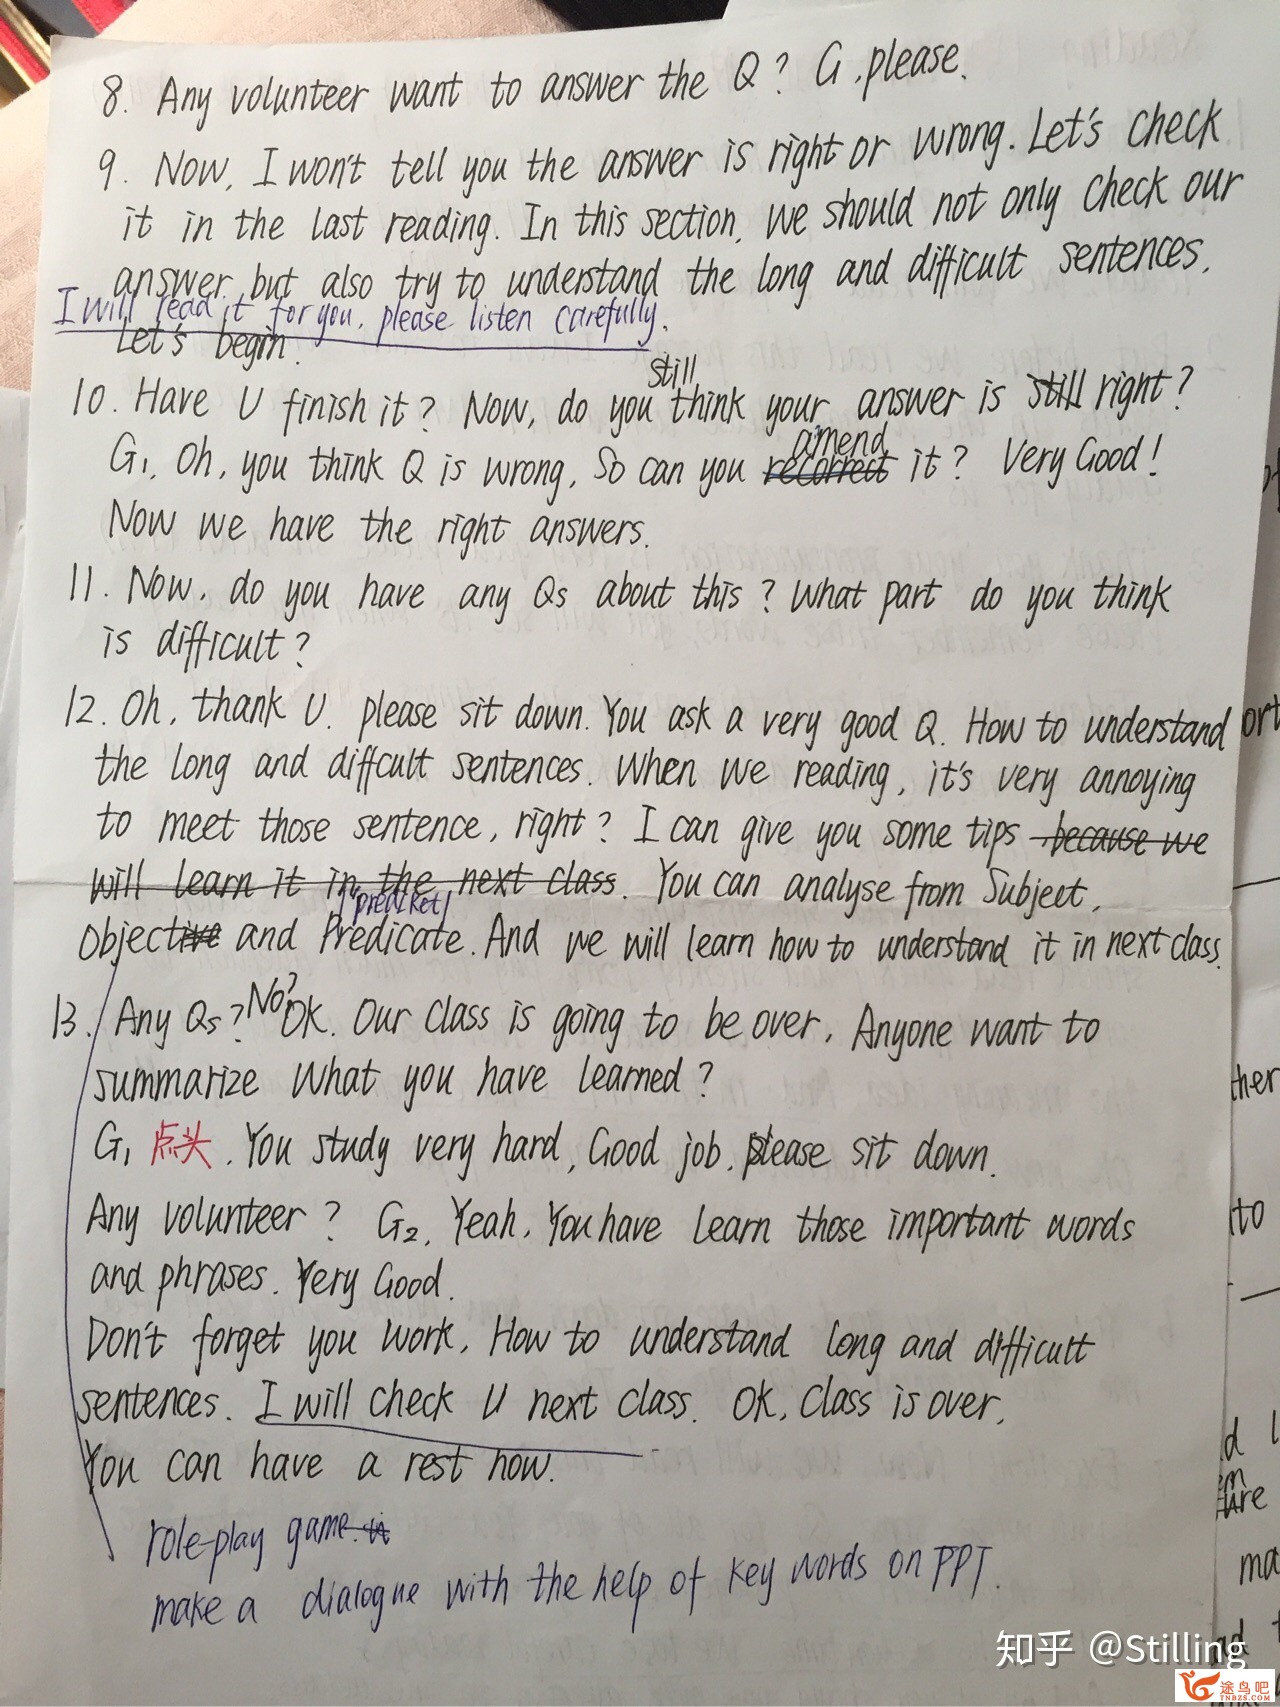 8. Any volunteer want to answer the Q? G, please.
9. Now, I won't tell you the answer is right or wrong. Let's check
it in the last reading. In this section, we should not only check our
answer but also try to understand the long and difficult sentences.
I will read it for you, please listen carefully.
Let's begin.
still
10. Have U finish it? Now, do you think your answer is still right?
amend
G1, Oh, you think Q is wrong, So can you recorrect it? Very Good!
Now we have the right answers.
11. Now, do you have any Qs about this? What part do you think
is difficult?
12. Oh, thank U. please sit down. You ask a very good Q. How to understand
the long and diffcult sentences. When we reading, it's very annoying
to meet those sentence, right? I can give you some tips because we
will learn it in the next class. You can analyse from Subject,
/prediket/
Objective and Predicate. And we will learn how to understand it in next class.
13. Any Qs? No? OK. Our class is going to be over, Anyone want to
summarize what you have learned?
G1 点头. You study very hard, Good job, please sit down.
Any volunteer? G2, Yeah, You have learn those important words
and phrases. Very Good.
Don't forget you work, How to understand long and difficult
sentences. I will check U next class. OK, Class is over,
You can have a rest now.
role-play game. in
make a dialogue with the help of key words on PPT.
ort
ther
to
ma
知乎 @Stilling
途鸟吧
TNBZS.COM